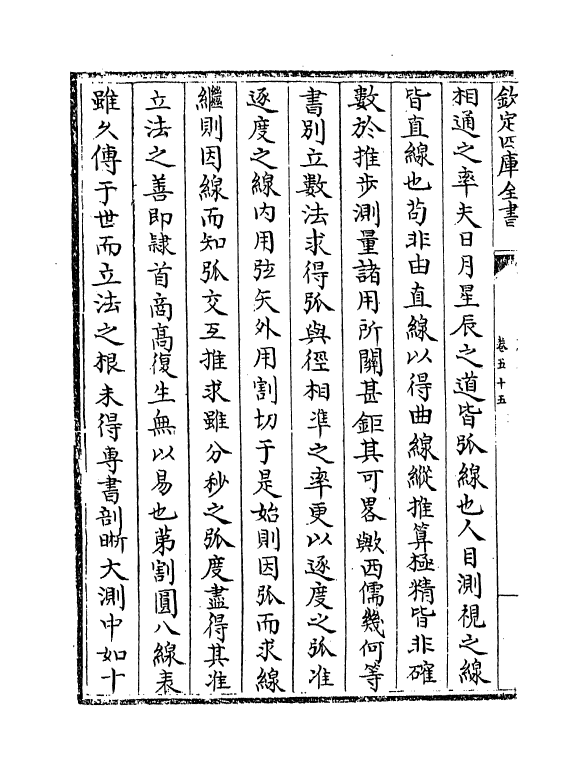 欽定四庫全書
卷五十五
相通之率夫日月星辰之道皆弧線也人目測視之線
皆直線也苟非由直線以得曲線縱推算極精皆非確
數於推步測量諸用所關甚鉅其可畧歟西儒幾何等
書別立數法求得弧與徑相準之率更以逐度之弧准
逐度之線内用弦矢外用割切于是始則因弧而求線
繼則因線而知弧交互推求雖分秒之弧度盡得其准
立法之善即隸首商髙復生無以易也苐割圓八線表
雖乆傳于世而立法之根未得専書剖晰大測中如十